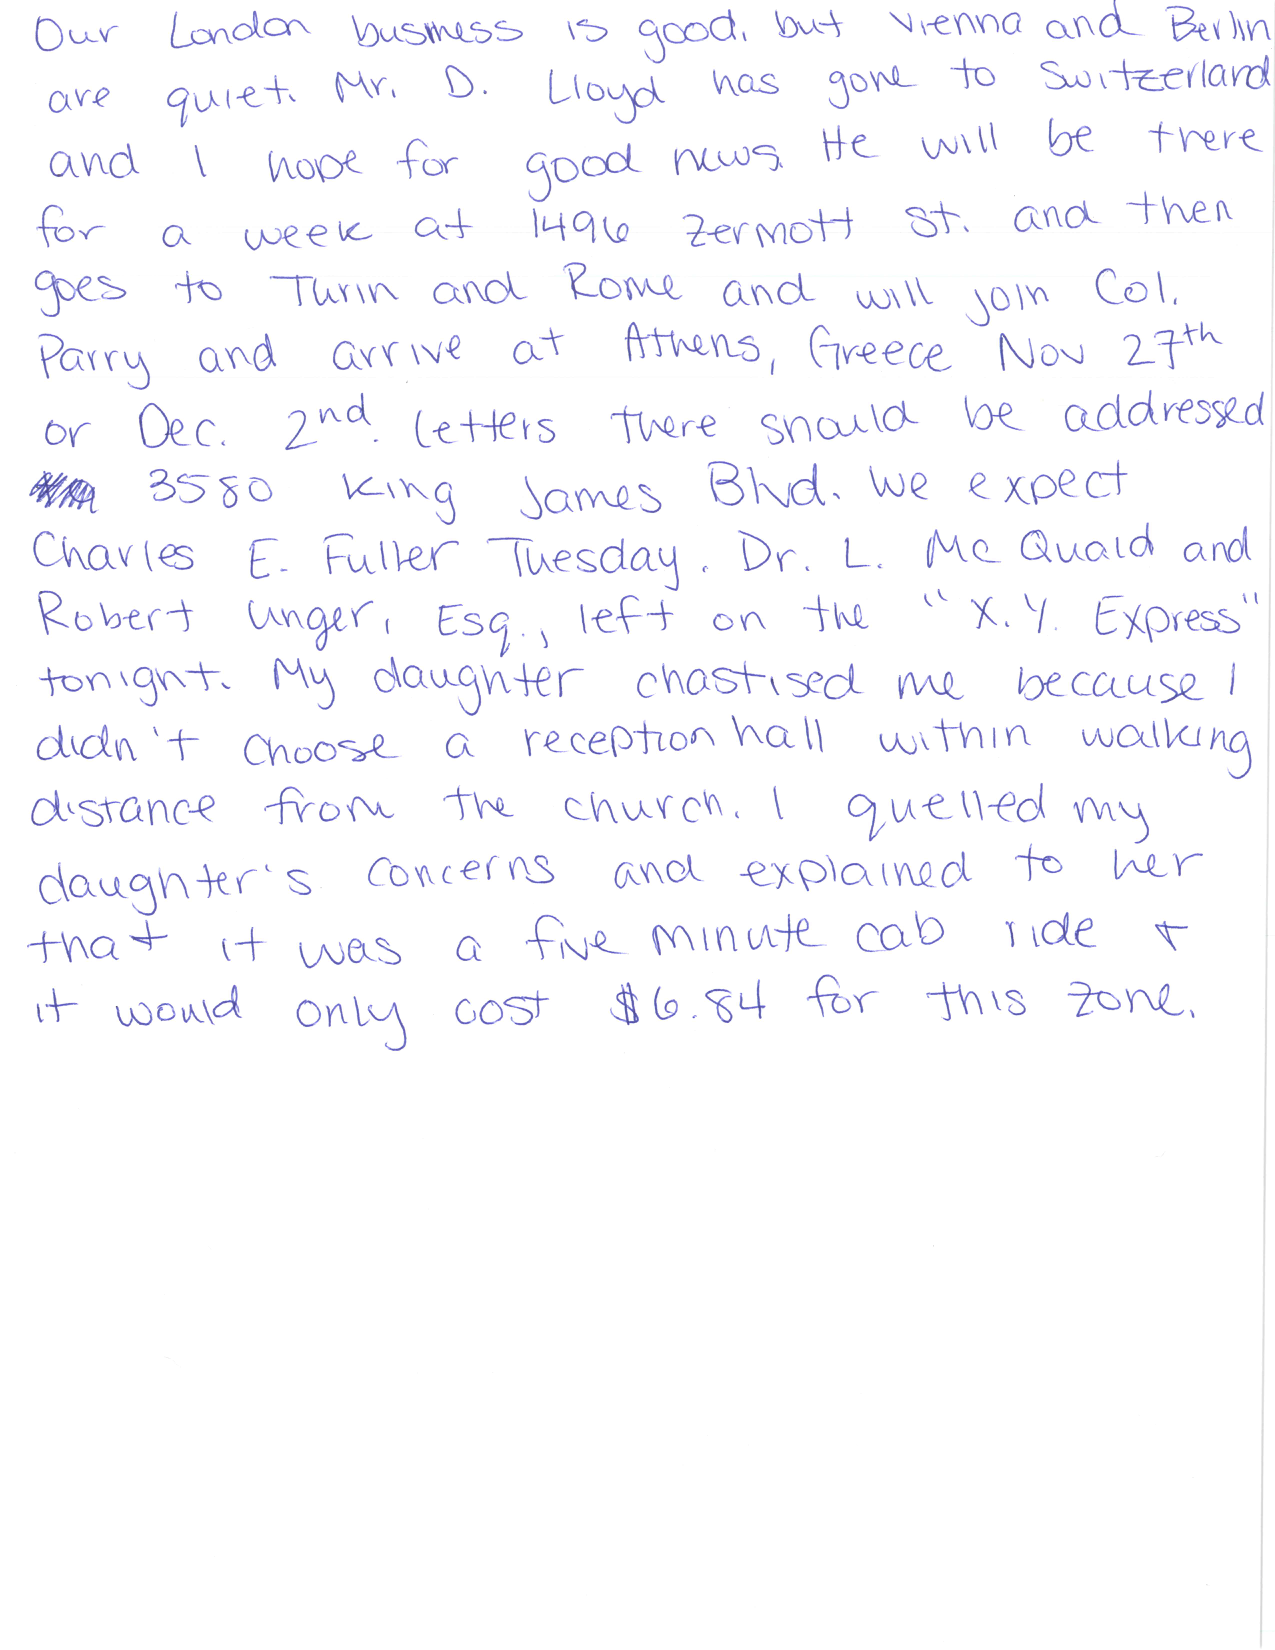 Our London business is good, but Vienna and Berlin
are quiet. Mr. D. Lloyd has gone to Switzerland
and I hope for good news. He will be there
for a week at 1496 Zermott St. and then
goes to Turin and Rome and will join Col.
Parry and arrive at Athens, Greece Nov 27th
or Dec. 2nd. Letters there should be addressed
3580 King James Blvd. We expect
Charles E. Fuller Tuesday. Dr. L. McQuaid and
Robert Unger, Esq., left on the "X.Y. Express"
tonight. My daughter chastised me because I
didn't choose a reception hall within walking
distance from the church. I quelled my
daughter's concerns and explained to her
that it was a five minute cab ride +
it would only cost $6.84 for this zone.